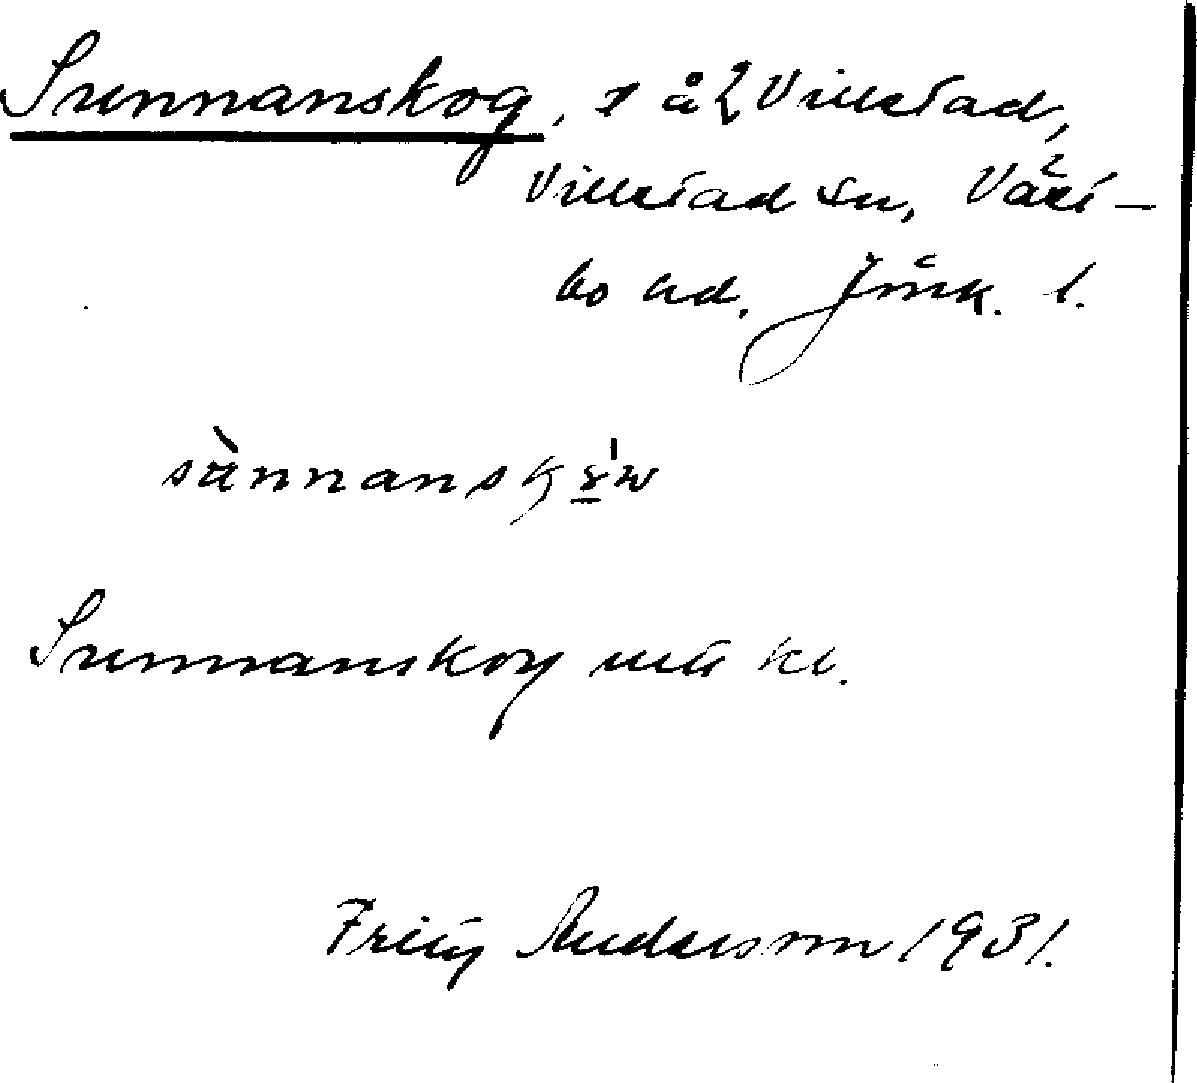 Sunnanskog, i Villstad,
Villstad sn, Väst-
bo hd. Jönk. l.
sànnansk
Sunnanskog utä kt.
Fritz Andersson 1931.